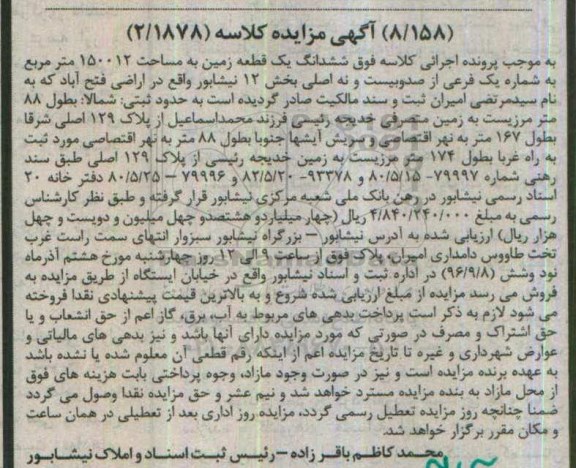 (۸/۱۵۸) آگهی مزایده کلاسه (۲/۱۸۷۸)
به موجب پرونده اجرائی کلاسه فوق ششدانگ یک قطعه زمین به مساحت ۱۵۰۰۱۲ متر مربع
به شماره یک فرعی از صدوبیست و نه اصلی بخش ۱۲ نیشابور واقع در اراضی فتح آباد که به
نام سیدمرتضی امیران ثبت و سند مالکیت صادر گردیده است به حدود ثبتی: شمالا: بطول ۸۸
متر مرزیست به زمین متصرفی خدیجه رئیسی فرزند محمداسماعیل از پلاک ۱۲۹ اصلی شرقا
بطول ۱۶۷ متر به نهر اقتصاصی و سریش آبشها جنوبا بطول ۸۸ متر به نهر اقتصاصی مورد ثبت
به راه غربا بطول ۱۷۴ متر مرزیست به زمین خدیجه رئیسی از پلاک ۱۲۹ اصلی طبق سند
رهنی شماره ۷۹۹۹۷- ۸۰/۵/۱۵ و ۹۳۳۷۸- ۸۲/۵/۲۰ و ۷۹۹۹۶ – ۸۰/۵/۲۵ دفتر خانه ۲۰
اسناد رسمی نیشابور در رهن بانک ملی شعبه مرکزی نیشابور قرار گرفته و طبق نظر کارشناس
رسمی به مبلغ ۴/۸۴۰/۲۴۰/۰۰۰ ریال (چهار میلیاردو هشتصدو چهل میلیون و دویست و چهل
هزار ریال) ارزیابی شده به آدرس نیشابور – بزرگراه نیشابور سبزوار انتهای سمت راست غرب
تخت طاووس دامداری امیران پلاک فوق از ساعت ۹ الی ۱۲ روز چهارشنبه مورخ هشتم آذرماه
نود وشش (۹۶/۹/۸) در اداره ثبت و اسناد نیشابور واقع در خیابان ایستگاه از طریق مزایده به
فروش می رسد مزایده از مبلغ ارزیابی شده شروع و به بالاترین قیمت پیشنهادی نقدا فروخته
می شود لازم به ذکر است پرداخت بدهی های مربوط به آب، برق، گاز اعم از حق انشعاب و یا
حق اشتراک و مصرف در صورتی که مورد مزایده دارای آنها باشد و نیز بدهی های مالیاتی و
عوارض شهرداری و غیره تا تاریخ مزایده اعم از اینکه رقم قطعی آن معلوم شده یا نشده باشد
به عهده برنده مزایده است و نیز در صورت وجود مازاد، وجوه پرداختی بابت هزینه های فوق
از محل مازاد به بنده مزایده مسترد خواهد شد و نیم عشر و حق مزایده نقدا وصول می گردد
ضمنا چنانچه روز مزایده تعطیل رسمی گردد، مزایده روز اداری بعد از تعطیلی در همان ساعت
و مکان مقرر برگزار خواهد شد.
محمد کاظم باقر زاده – رئیس ثبت اسناد و املاک نیشابور